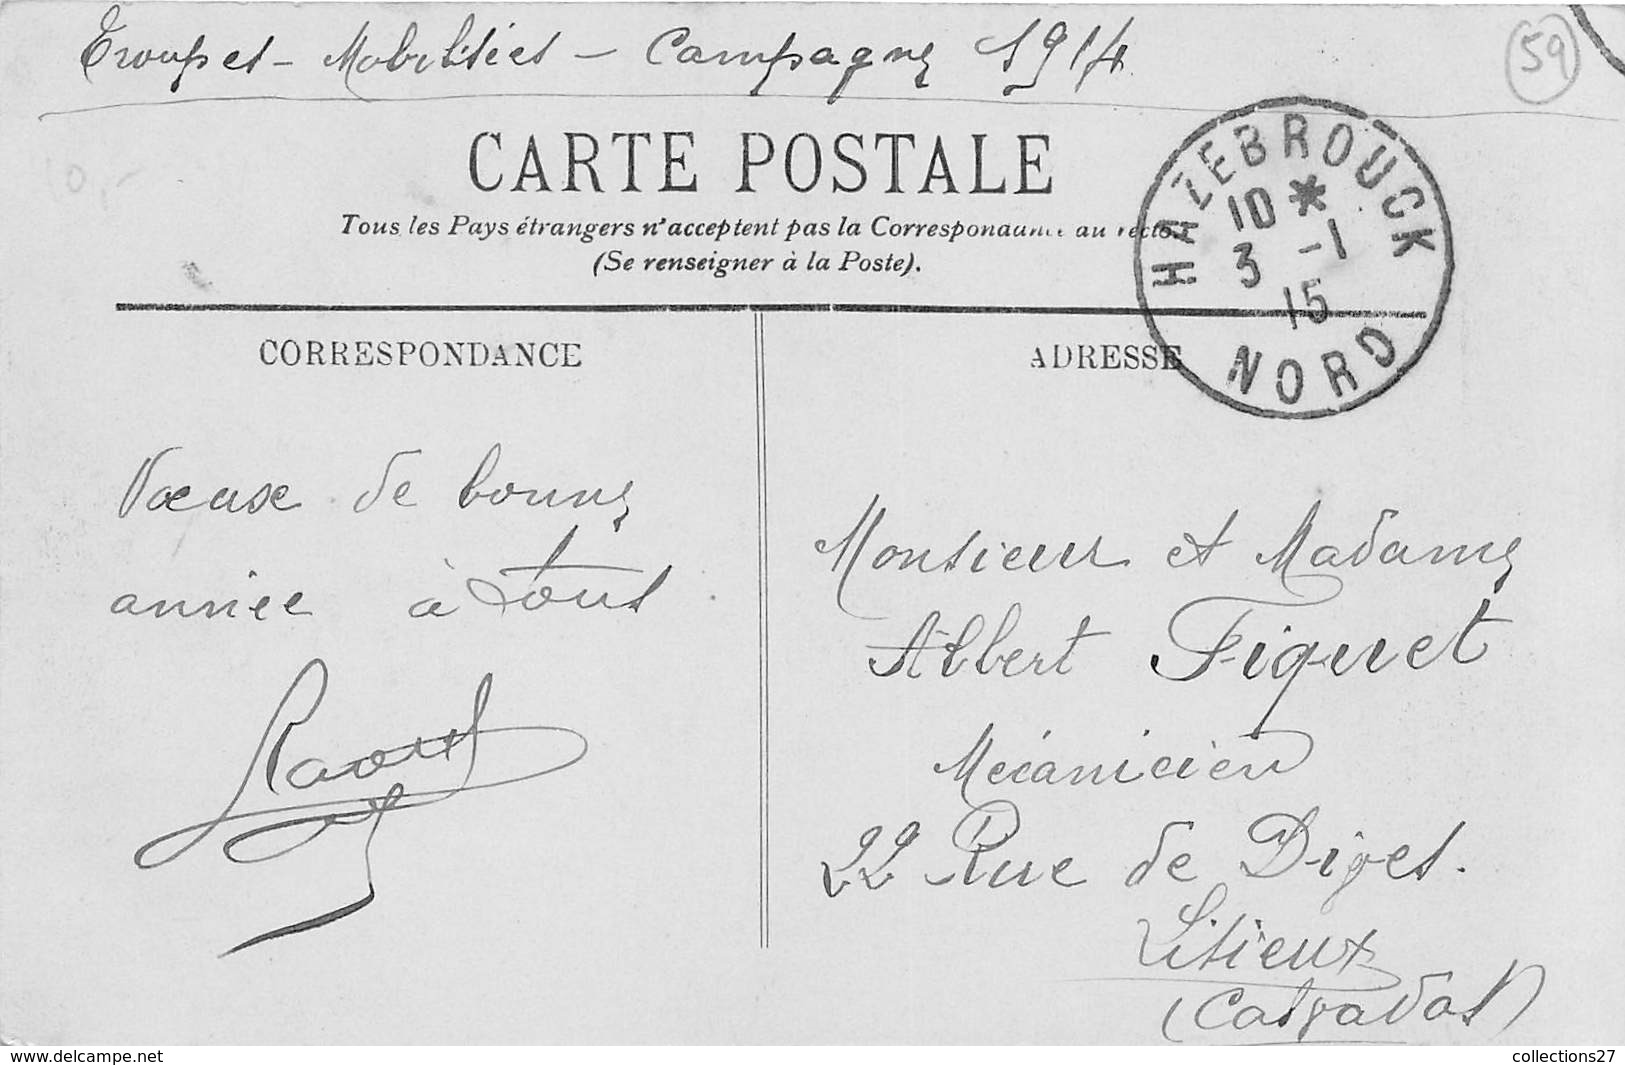 Troupes - Mobilisées - Campagne 1914
59
CARTE POSTALE
Tous les Pays étrangers n'acceptent pas la Correspondance au recto.
(Se renseigner à la Poste).
HAZEBROUCK
10 *
3 -1
15
NORD
CORRESPONDANCE
Vœuxe de bonne
année à tous
Raoul
ADRESSE
Monsieur et Madame
Albert Fiquet
Mécanicien
22 Rue de Dives.
Lisieux
(Calvados)
www.delcampe.net
collections27